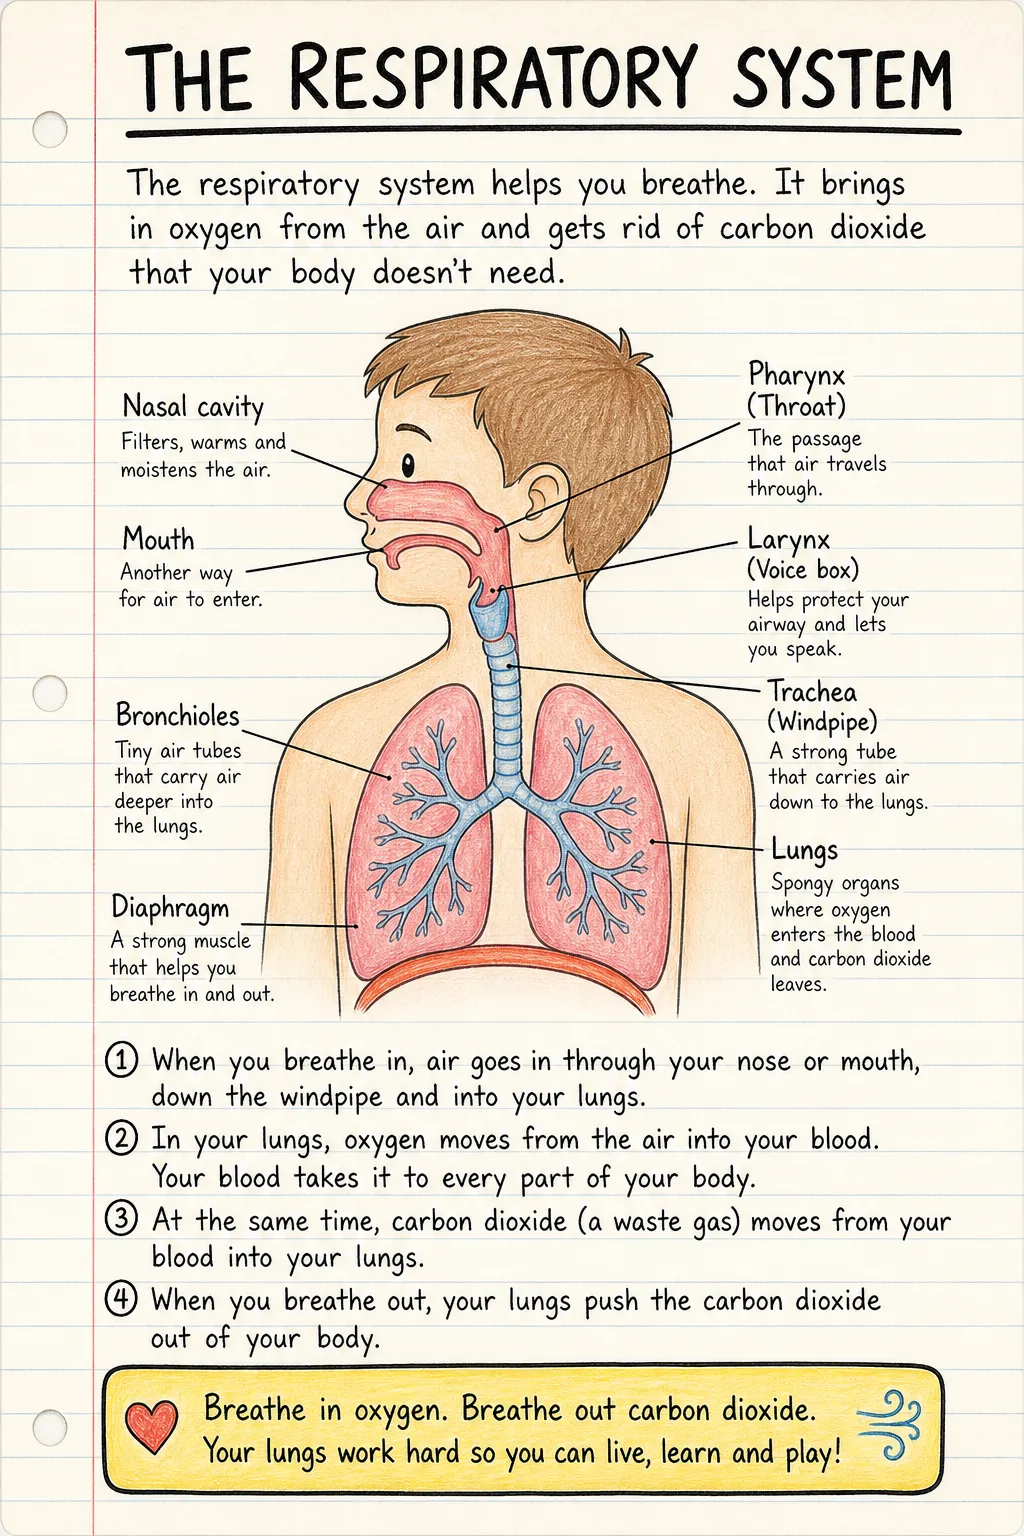 THE RESPIRATORY SYSTEM
The respiratory system helps you breathe. It brings
in oxygen from the air and gets rid of carbon dioxide
that your body doesn't need.
Nasal cavity
Filters, warms and
moistens the air.
Mouth
Another way
for air to enter.
Bronchioles
Tiny air tubes
that carry air
deeper into
the lungs.
Diaphragm
A strong muscle
that helps you
breathe in and out.
Pharynx
(Throat)
The passage
that air travels
through.
Larynx
(Voice box)
Helps protect your
airway and lets
you speak.
Trachea
(Windpipe)
A strong tube
that carries air
down to the lungs.
Lungs
Spongy organs
where oxygen
enters the blood
and carbon dioxide
leaves.
① When you breathe in, air goes in through your nose or mouth,
down the windpipe and into your lungs.
② In your lungs, oxygen moves from the air into your blood.
Your blood takes it to every part of your body.
③ At the same time, carbon dioxide (a waste gas) moves from your
blood into your lungs.
④ When you breathe out, your lungs push the carbon dioxide
out of your body.
Breathe in oxygen. Breathe out carbon dioxide.
Your lungs work hard so you can live, learn and play!